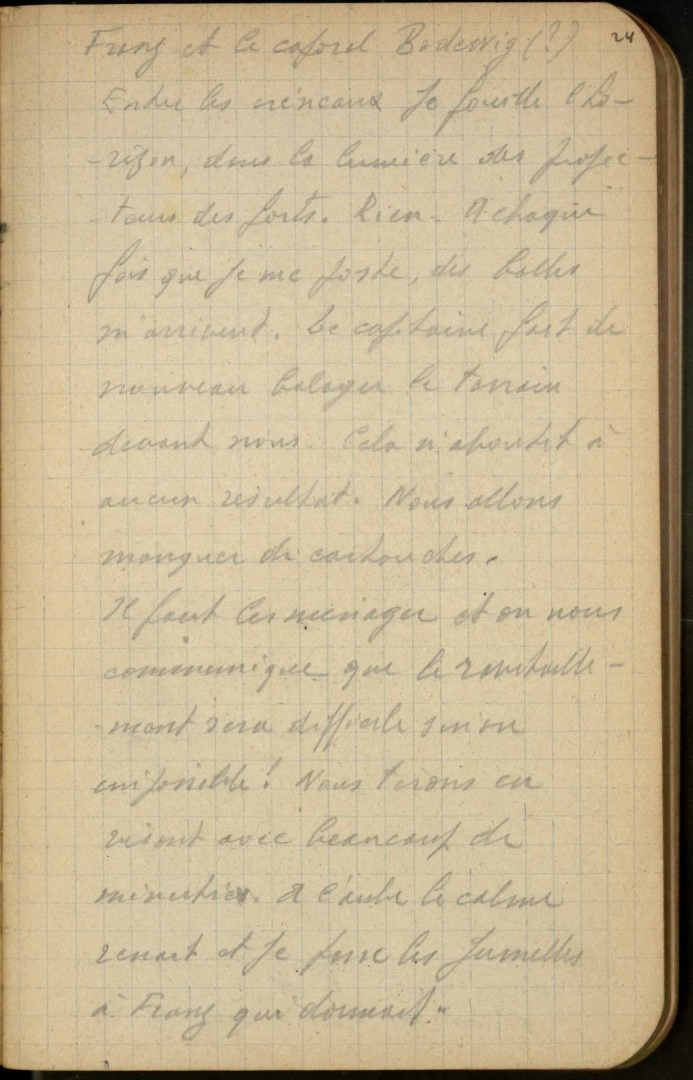 24
Franz et le caporal Bodewig (?)
Entre les créneaux je fouille l'ho-
-rizon, dans la lumière des projec-
-teurs des forts. Rien. A chaque
fois que je me poste, des balles
m'arrivent. Le capitaine fait de
nouveau balayer le terrain
devant nous. Cela n'aboutit à
aucun résultat. Nous allons
manquer de cartouches.
Il faut les ménager et on nous
communique que le ravitaille-
-ment sera difficile sinon
impossible! Nous tirons en
visant avec beaucoup de
minutie. A l'aube le calme
renait et je passe les jumelles
à Franz qui dormait.